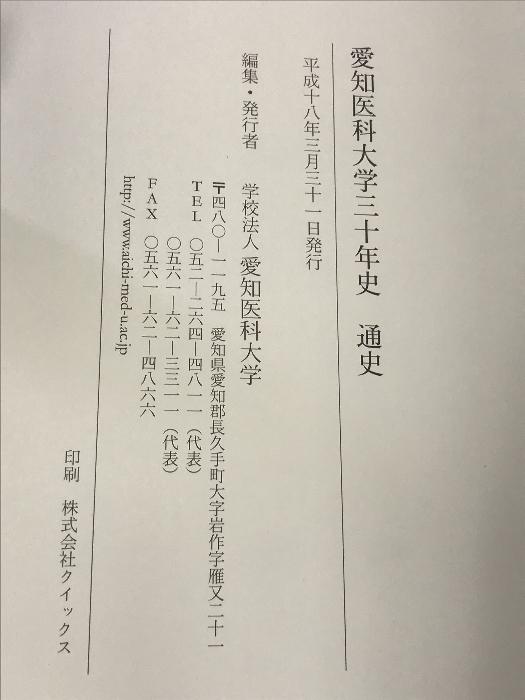 愛知医科大学三十年史　通史
平成十八年三月三十一日発行
編集・発行者　学校法人 愛知医科大学
〒四八〇―一一九五　愛知県愛知郡長久手町大字岩作字雁又二十一
TEL　〇五二―二六四―四八一一（代表）
〇五六一―六二―三三一一（代表）
FAX　〇五六一―六二―四八六六
http://www.aichi-med-u.ac.jp
印刷　株式会社クイックス